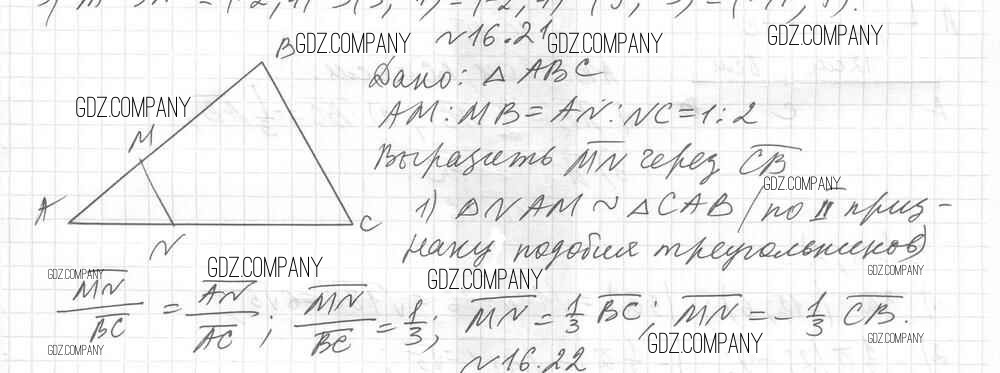 ~16.21
Дано: △ ABC
AM : MB = AN : NC = 1 : 2
Выразить \overline{MN} через \overline{CB}
1) △NAM ~ △CAB (по II приз-
наку подобия треугольников)
\overline{MN}/\overline{BC} = \overline{AN}/\overline{AC}; \overline{MN}/\overline{BC} = 1/3; \overline{MN} = 1/3 \overline{BC}; \overline{MN} = - 1/3 \overline{CB}.
~16.22
B
M
A
N
C
GDZ.COMPANY
GDZ.COMPANY
GDZ.COMPANY
GDZ.COMPANY
GDZ.COMPANY
GDZ.COMPANY
GDZ.COMPANY
GDZ.COMPANY
GDZ.COMPANY
GDZ.COMPANY
GDZ.COMPANY
GDZ.COMPANY